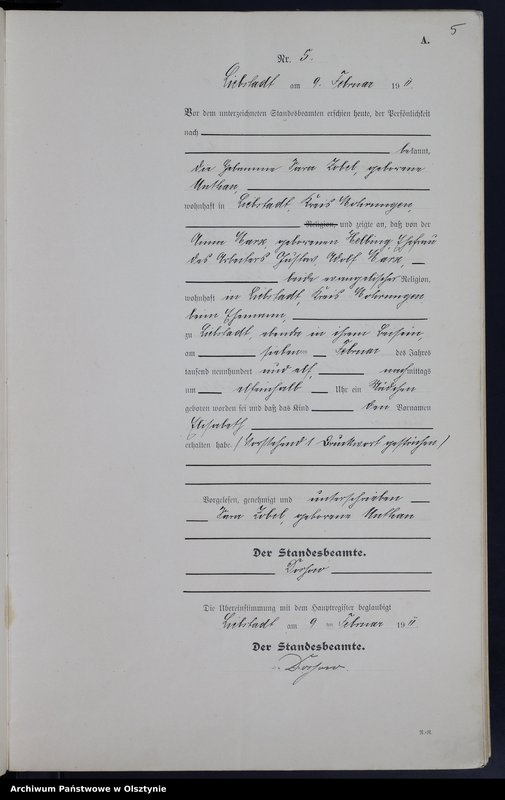 5
A.
Nr. 5.
Liebstadt am 9. Februar 1911.
Vor dem unterzeichneten Standesbeamten erschien heute, der Persönlichkeit
nach
bekannt,
die Hebamme Zobel, geborene
wohnhaft in Liebstadt, Kreis Mohrungen,
Religion, und zeigte an, daß von der
Anna geborenen Helbing, Ehefrau
des Arbeiters Gustav Adolf
beide evangelischer Religion,
wohnhaft in Liebstadt, Kreis Mohrungen
beim Ehemann,
zu Liebstadt, ebenda in ihrem Beisein,
am sieben ten Februar des Jahres
tausend neunhundert und elf, nachmittags
um elfeinhalb Uhr ein Mädchen
geboren worden sei und daß das Kind den Vornamen
Elisabeth
erhalten habe. (Vorstehend 1 Druckwort gestrichen)
Vorgelesen, genehmigt und unterschrieben
Zobel, geborene
Der Standesbeamte.
Die Übereinstimmung mit dem Hauptregister beglaubigt
Liebstadt am 9 ten Februar 1911
Der Standesbeamte.
Archiwum Państwowe w Olsztynie